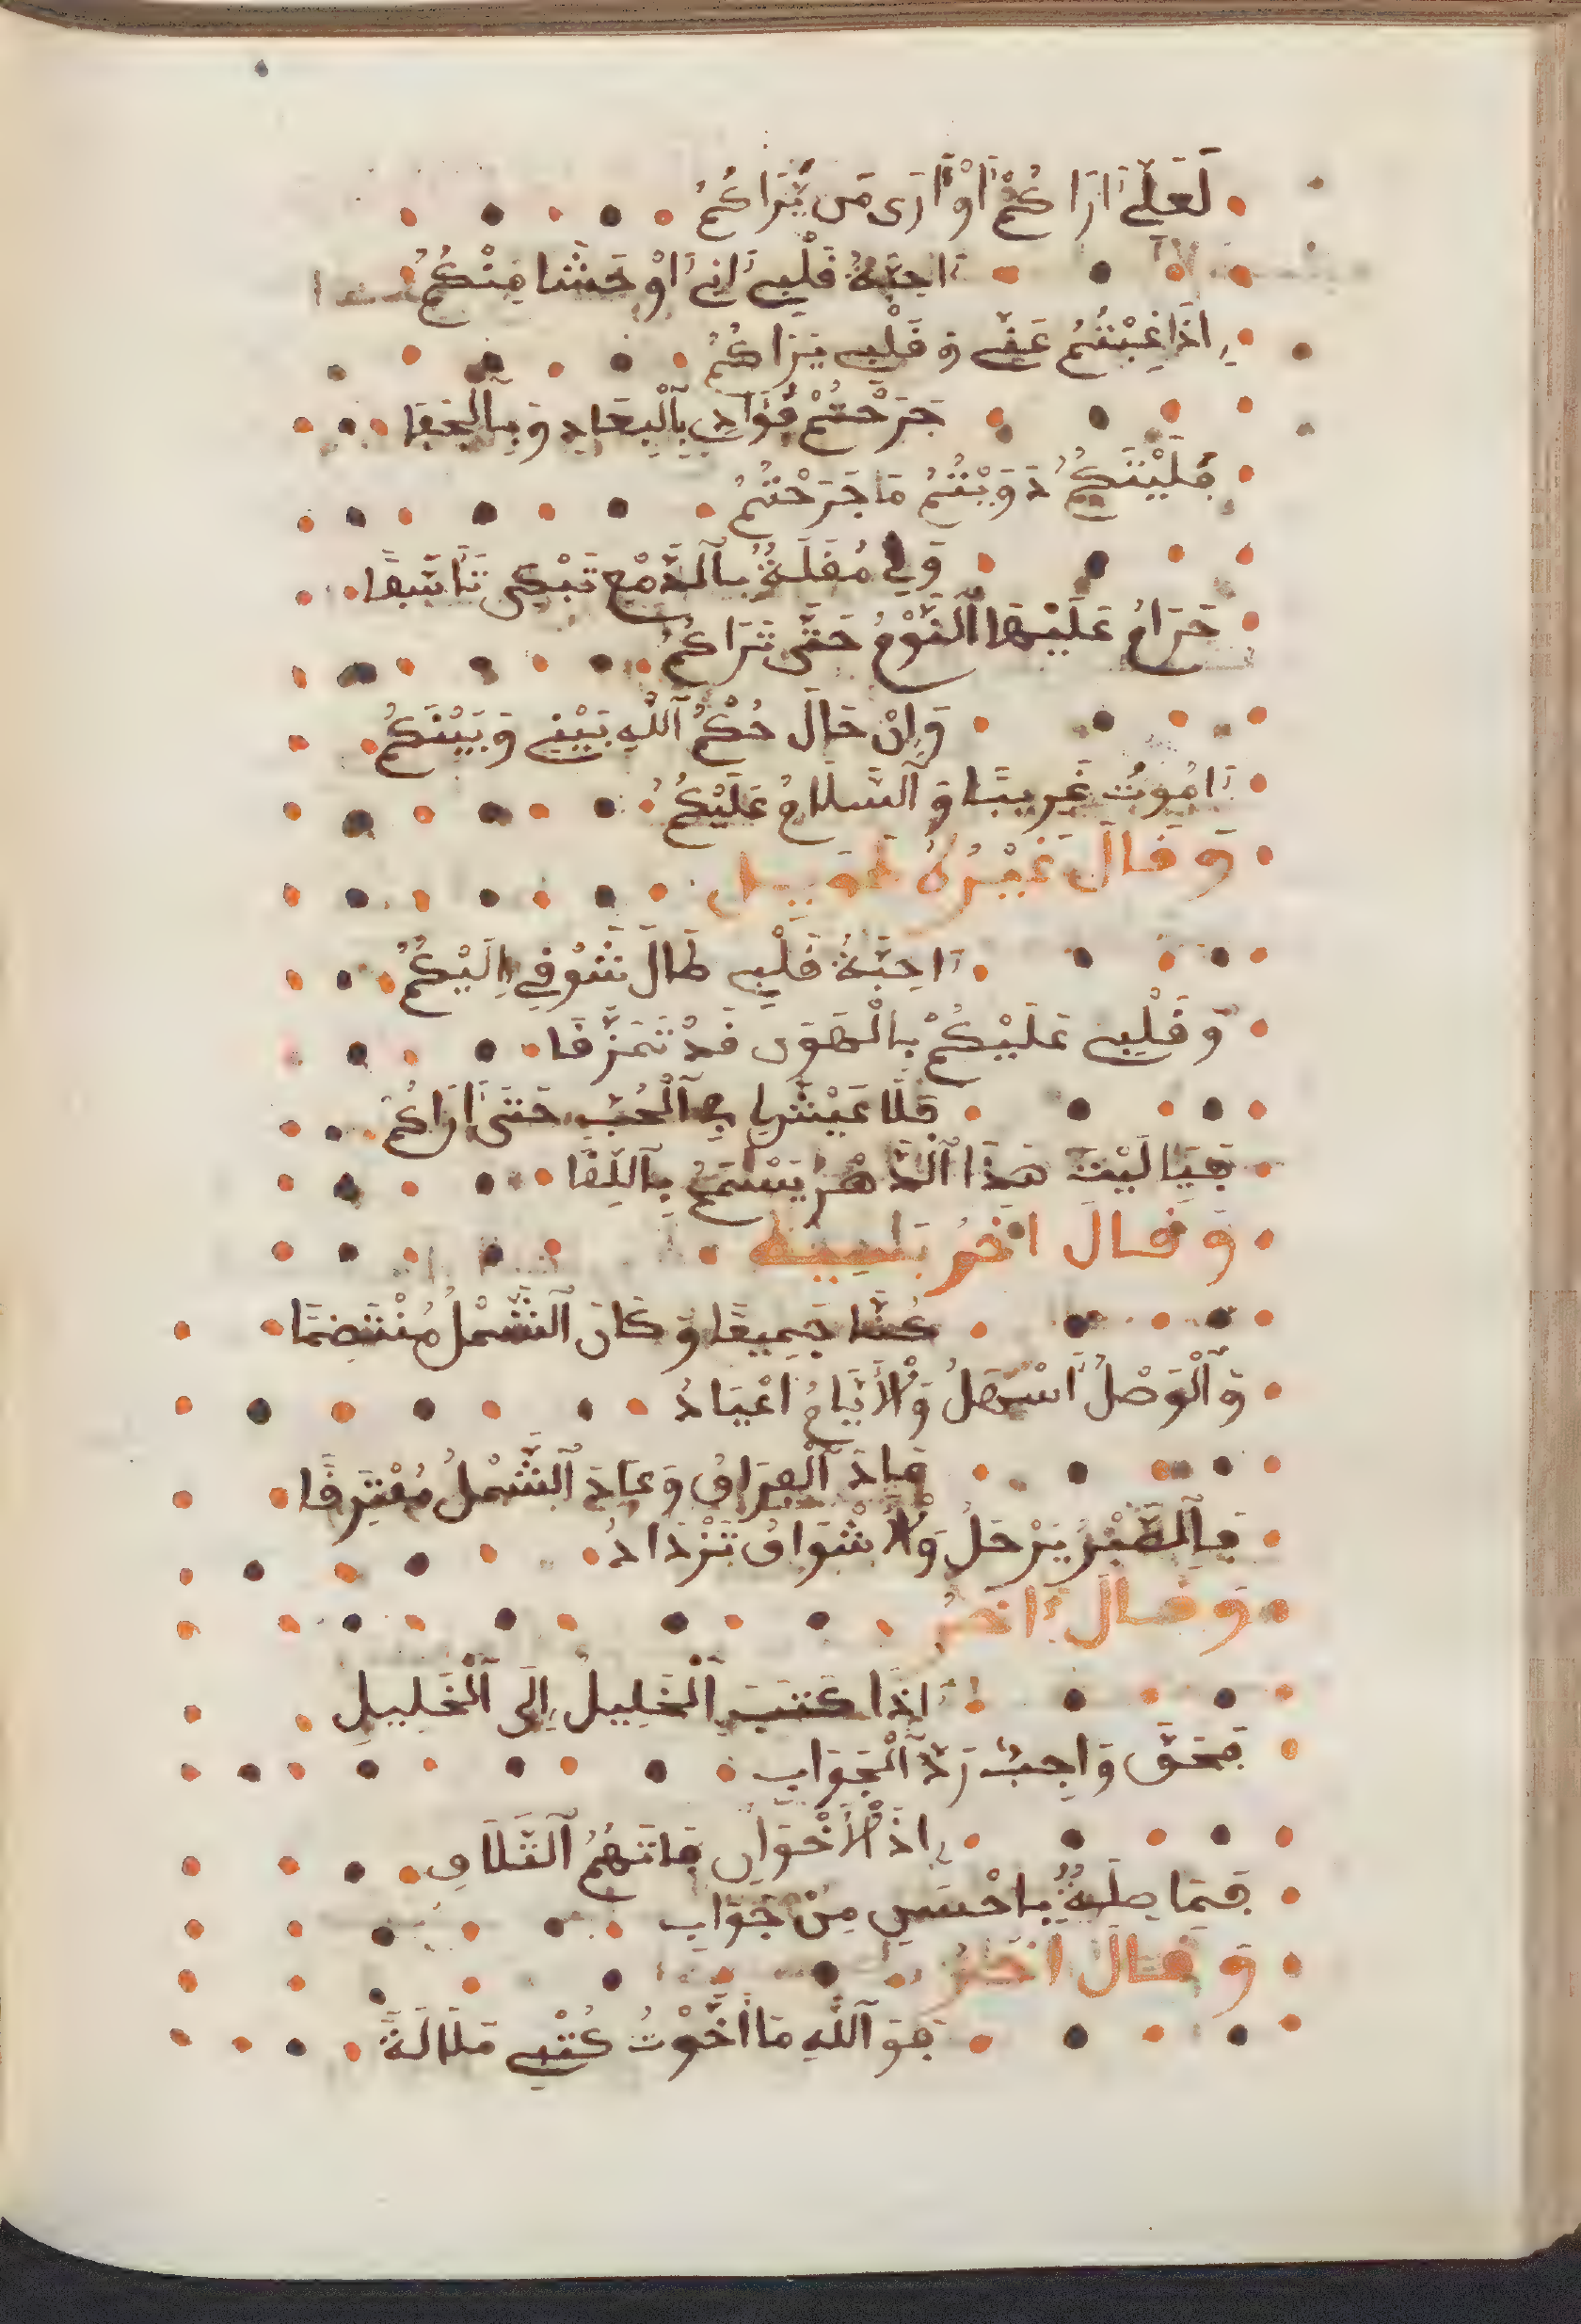 لَعَلِّي أَرَاكُمْ أَوْ أَرَى مَن يَّرَاكُمُ
أَحِبَّةَ قَلْبِي إِنِّي أَوْحَشَنَا مِنْكُمُ
إِذَا غِبْتُمُ عَنِّي وَقَلْبِي يَرَاكُمُ
جَرَحْتُمْ فُؤَادِي بِالْبِعَادِ وَبِالْجَفَا
فَلَيْتَكُمُ دَوَيْتُمُ مَا جَرَحْتُمُ
وَلِي مُقْلَةٌ بِالدَّمْعِ تَبْكِي تَأَسُّفًا
حَرَامٌ عَلَيْهَا النَّوْمُ حَتَّى تَرَاكُمُ
وَإِنْ حَالَ حُكْمُ اللَّهِ بَيْنِي وَبَيْنَكُمُ
أَمُوتُ غَرِيبًا وَالسَّلَامُ عَلَيْكُمُ
وَقَالَ غَيْرُهُ طَوِيل
أَحِبَّةَ قَلْبِي طَالَ شَوْقِي إِلَيْكُمُ
وَقَلْبِي عَلَيْكُمْ بِالْهَوَى قَدْ تَمَزَّقَا
فَلَا عَيْشَ لِي فِي الْحُبِّ حَتَّى أَرَاكُمُ
فَيَا لَيْتَ هَذَا الدَّهْرُ يَسْمَحُ بِاللِّقَا
وَقَالَ اخَرُ بَسِيط
كُنَّا جَمِيعًا وَكَانَ الشَّمْلُ مُنْتَضِمًا
وَالْوَصْلُ أَسْهَلُ وَالْأَيَّامُ أَعْيَادُ
فَإِذَ الْفِرَاقُ وَعَادَ الشَّمْلُ مُفْتَرِقًا
فَالصَّبْرُ يَرْحَلُ وَالْأَشْوَاقُ تَزْدَادُ
وَقَالَ ءَاخَرُ
إِذَا كَتَبَ الْخَلِيلُ إِلَى الْخَلِيلِ
فَحَقٌّ وَاجِبٌ رَدُّ الْجَوَابِ
إِذِ الْأَخْوَانِ فَاتَهُمُ التَّلَاقِ
فَمَا صِلَةٌ بِأَحْسَنِ مِنْ جَوَابِ
وَقَالَ اخَرُ
فَوَاللَّهِ مَا أَخَّرْتُ كُتْبِي مَلَالَةً